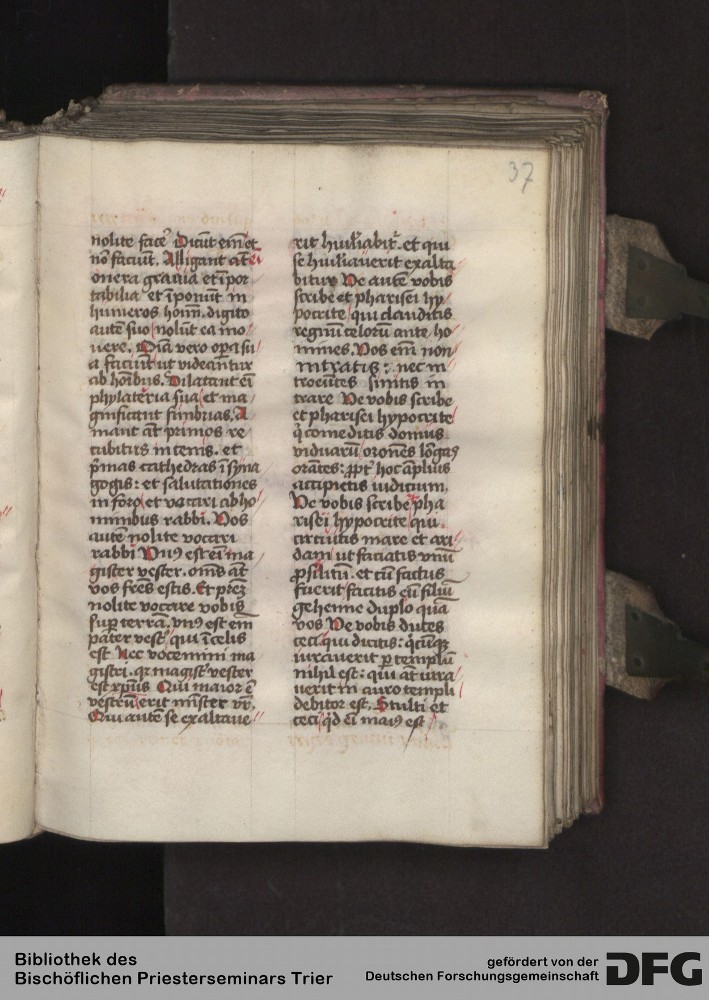 37
nolite face᷑ Dicūt em̄ et
nō faciūt. Alligant aūt ei
onera grauia et īpor
tabilia et īponūt in
humeros homī. digito
autē suo nolūt ea mo
uere. Oīa vero opa su
a faciūt ut videantur
ab hoībus. Dilatant eī
phylateria sua et ma
gnificant fimbrias. A
mant aūt primos re
cubitus in cenis. et
p̄mas cathedras ī syna
gogis: et salutationes
in foro et vocari ab ho
minibus rabbi. Vos
autē nolite vocari
rabbi Vnꝰ est eī ma
gister vester. oms aūt
vos frēs estis. Et prēꝫ
nolite vocare vobis
sup terrā. vnꝰ est em̄
pater vest᷑ qui ī celis
est Nec vocemini ma
gistri. qꝛ magist᷑ vester
est xpūs Qui maior ē
vestrū erit mīster vr̄.
Qui autē se exaltaue
rit huiliabit᷑. et qui
se huiliauerit exalta
bitur Ve autē vobis
scribe et pharisei hy
pocrite qui clauditis
regnū celorū ante ho
mines. Vos em̄ non
intratis: nec in
troeūtes sinitis in
trare Ve vobis scribe
et pharisei hypocrite
q̄ comeditis domus
viduarū orōnes lōgas
orātes: ꝓpt᷑ hoc āplius
accipietis iudicium.
Ve vobis scribe pha
risei hypocrite qui
circuitis mare et ari
dam ut faciatis vnū
ꝓsilitū. et cū factus
fuerit facitis eū filiū
gehenne duplo quā
vos Ve vobis duces
ceci. qui dicitis: qīcūqꝫ
iurauerit ꝑ templū
nihil est: qui aūt iura
uerit in auro templi
debitor est. Stulti et
ceci qd eī maiꝰ est
Bibliothek des
Bischöflichen Priesterseminars Trier
gefördert von der
Deutschen Forschungsgemeinschaft
DFG